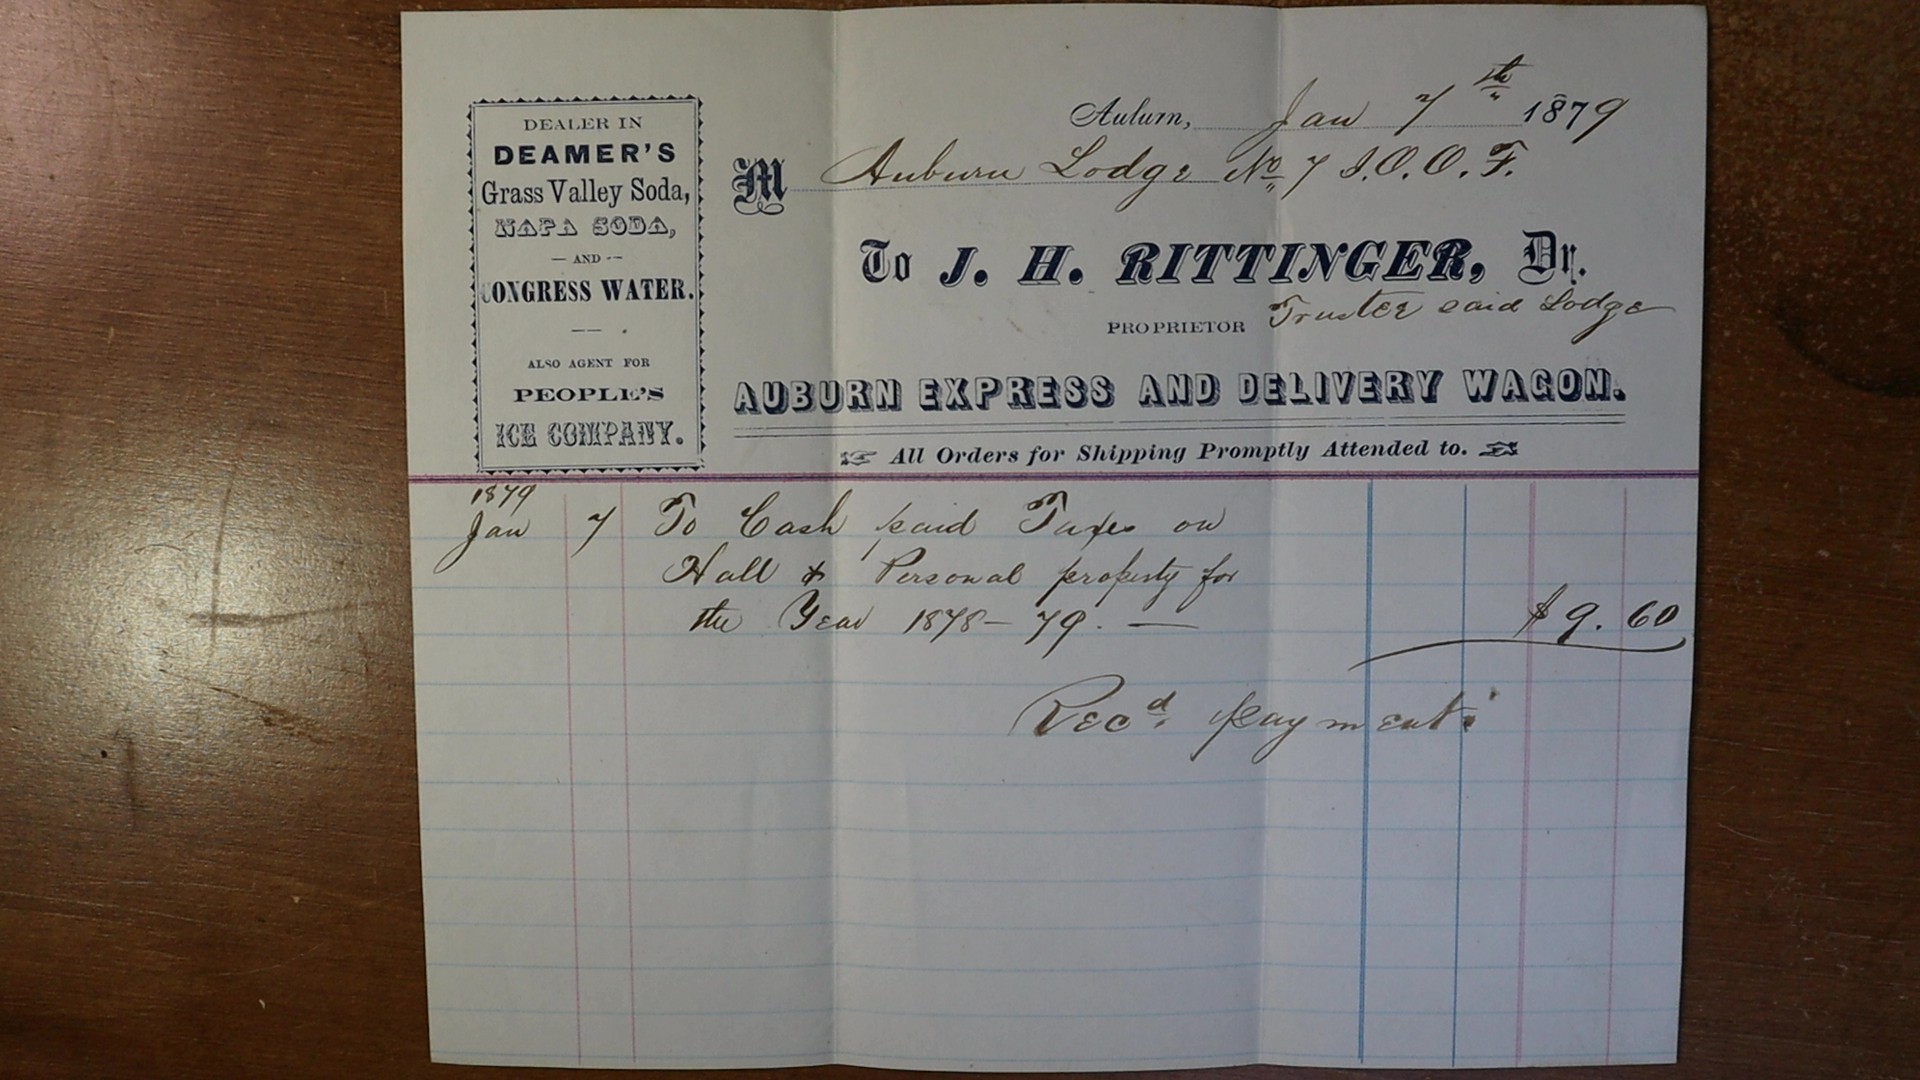 DEALER IN
DEAMER'S
Grass Valley Soda,
NAPA SODA,
— AND --
CONGRESS WATER.
ALSO AGENT FOR
PEOPLE'S
ICE COMPANY.
Auburn, Jan 7th 1879
M Auburn Lodge No. 7 I.O.O.F.
To J. H. RITTINGER, Dr.
PROPRIETOR Trustee said Lodge
AUBURN EXPRESS AND DELIVERY WAGON.
All Orders for Shipping Promptly Attended to.
1879
Jan 7 To Cash paid Taxes on
Hall & Personal property for
the Year 1878–79. — $9.60
Recd payment